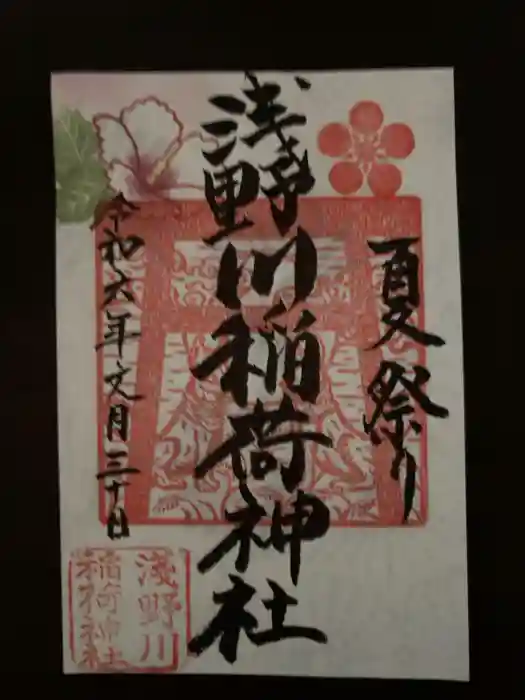 夏祭り
浅野川稲荷神社
令和六年文月三十日
淺野川
稲荷神社